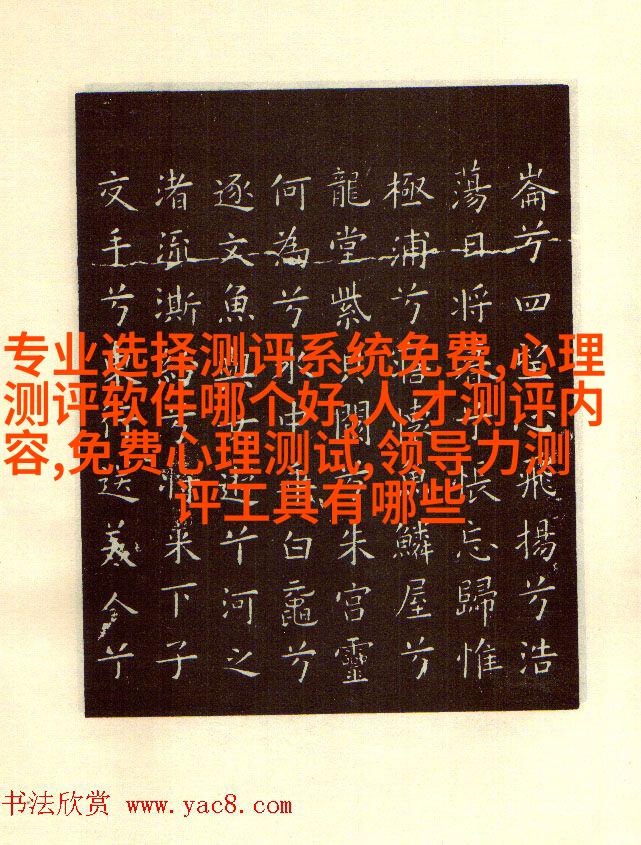 专业选择测评系统免费,心理
测评软件哪个好,人才测评内
容,免费心理测试,领导力测
评工具有哪些
崙兮四望心飛揚兮浩
蕩日將暮兮悵忘歸惟
極浦兮寤懷魚鱗屋兮
龍堂紫貝闕兮朱宮靈
何為兮水中乘白黿兮
逐文魚與女遊兮河之
渚流澌紛兮將來下子
交手兮東行送美人兮
书法欣赏 www.yac8.com